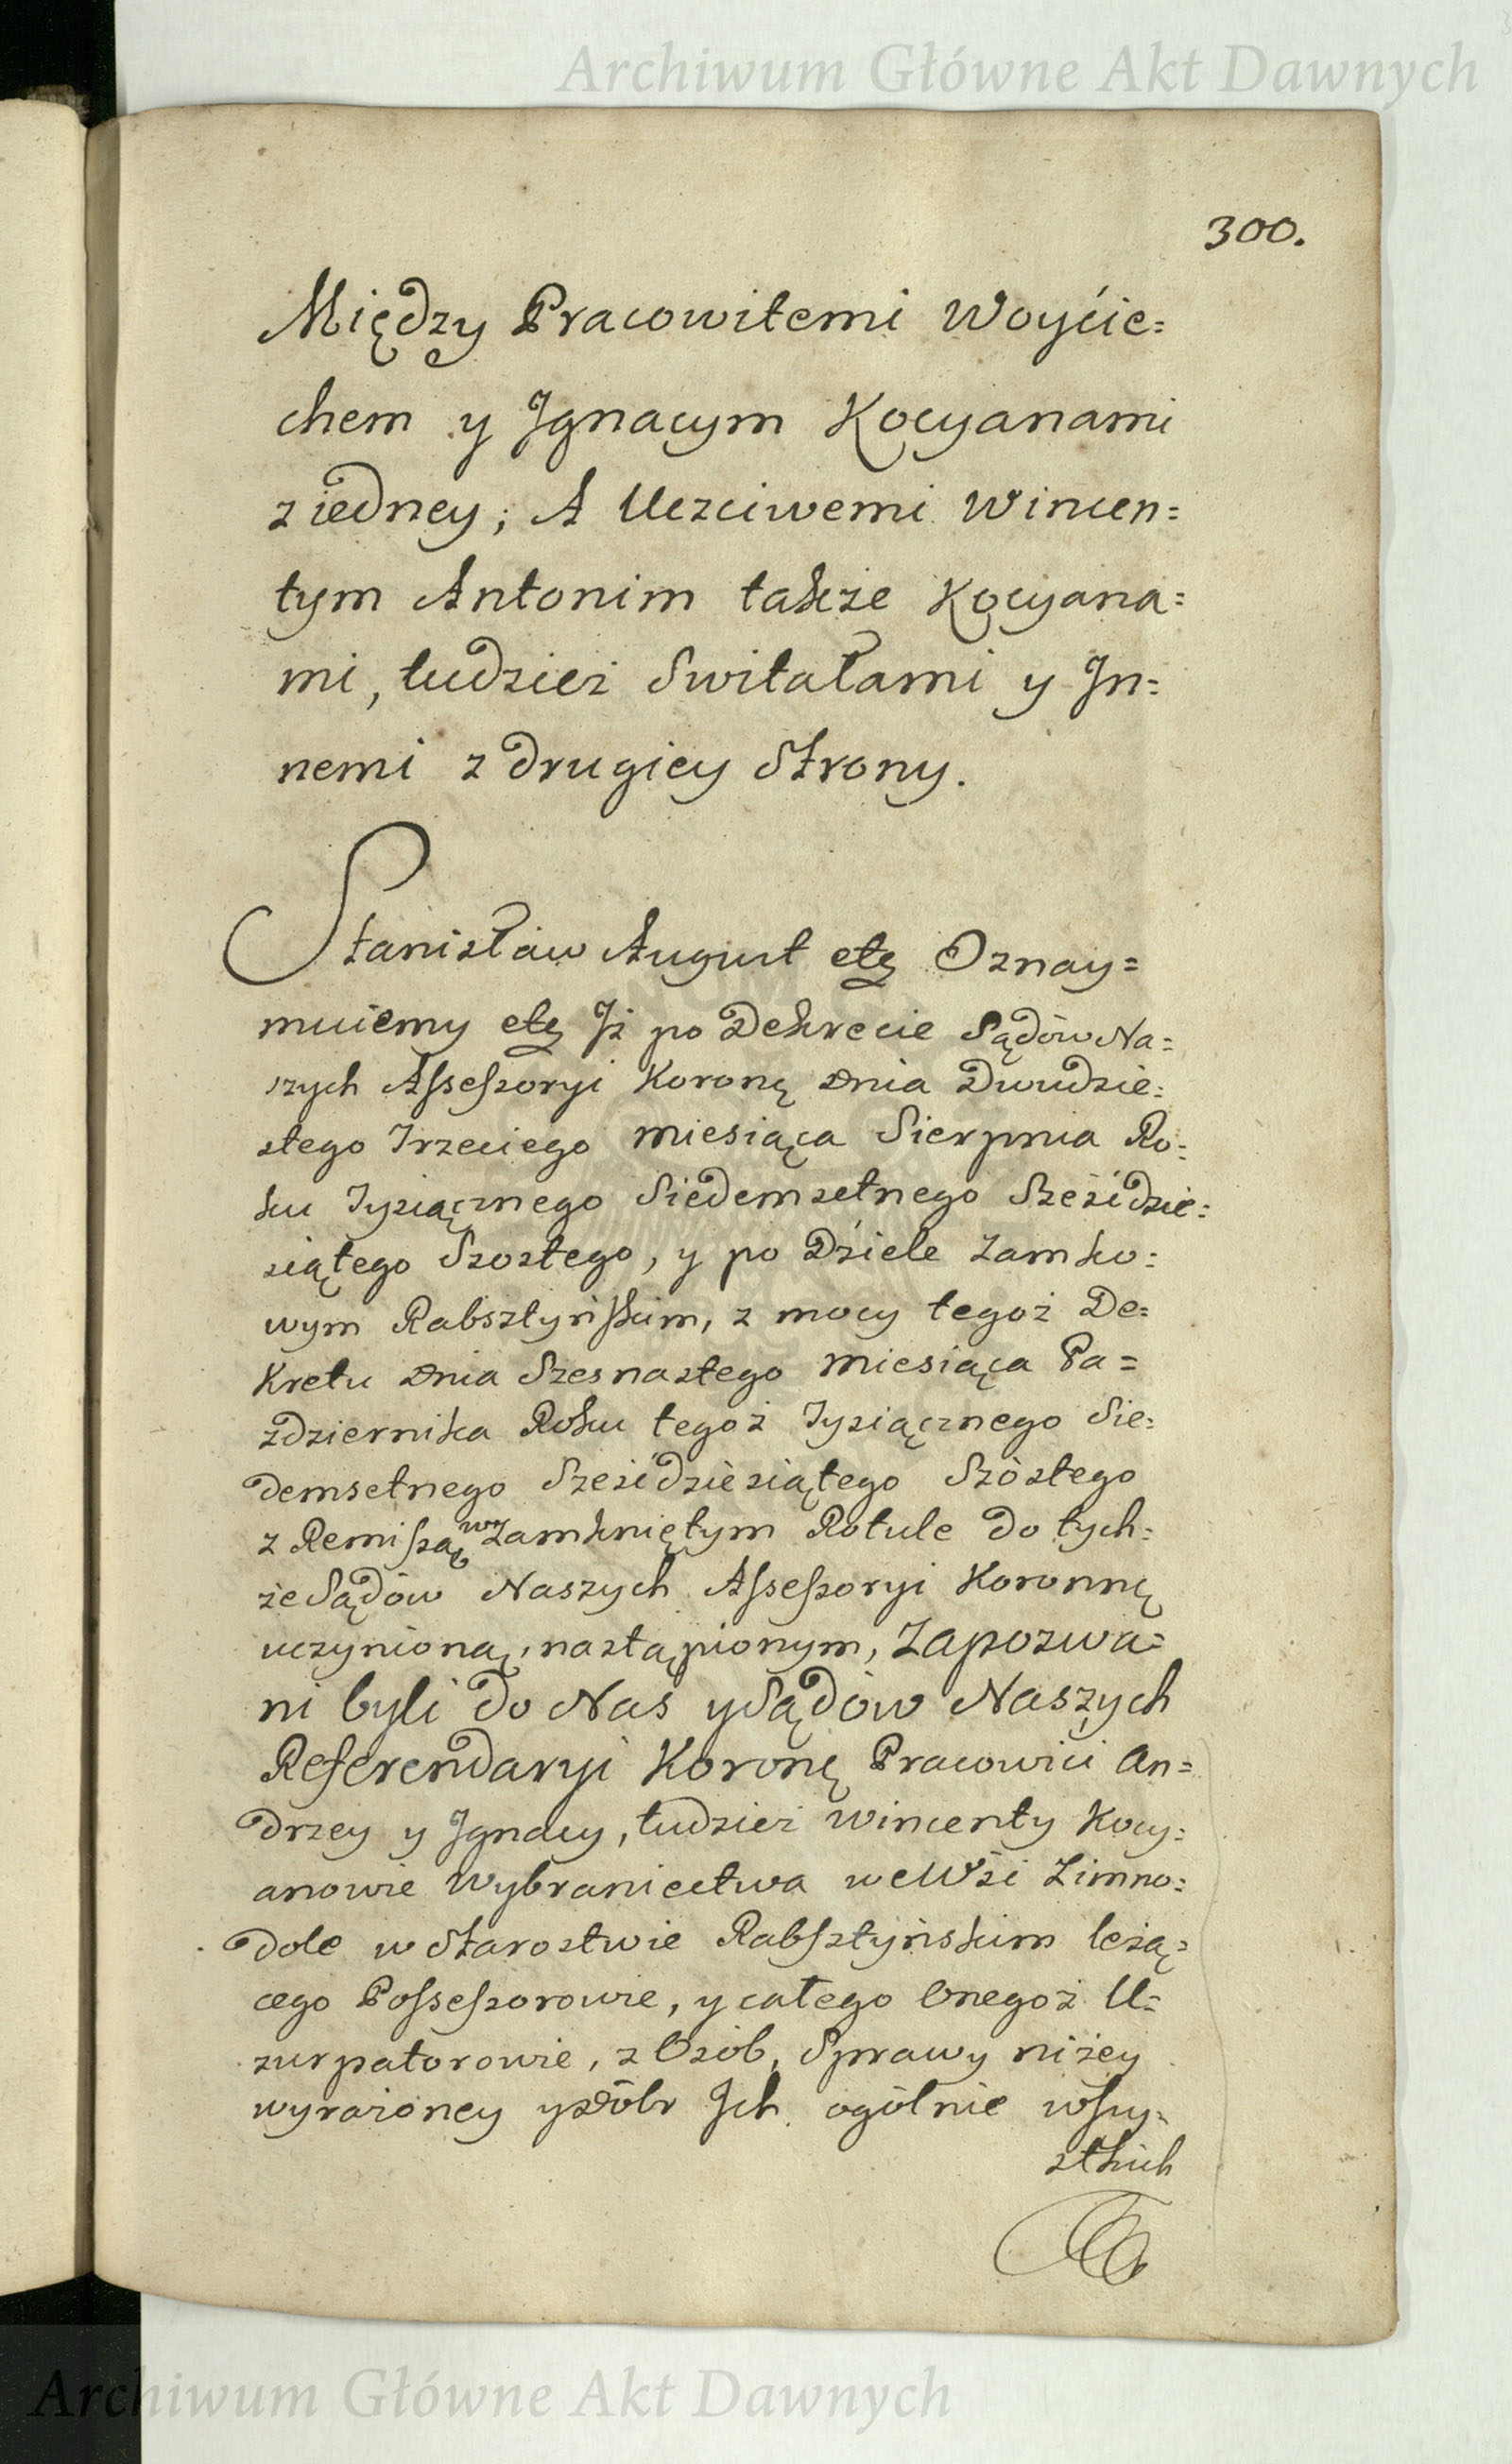 Archiwum Główne Akt Dawnych
300.
Między Pracowitemi Woyćie=
chem y Jgnacym Kocyanami
z iedney; A Uczciwemi Wincen=
tym Antonim także Kocyana=
mi, tudzież Switałami y Jn=
nemi z drugiey Strony.
Stanisław August etc Oznay=
muiemy etc Jż po Dekrecie Sądów Na=
szych Assessoryi Koronę Dnia Dwudzie=
stego Trzeciego Miesiąca Sierpnia Ro=
ku Tysiącznego Siedemsetnego Sześćdzie=
siątego Szostego, y po Dziele Zamko=
wym Rabsztyńskim, z mocy tegoż De=
Kretu Dnia Szesnastego Miesiąca Pa=
zdziernika Roku tegoż Tysiącznego Sie=
demsetnego Sześćdziesiątego Szóstego
z Remissą w Zamkniętym Rotule do tych=
że Sądów Naszych Assessoryi Koronnę
uczynioną, nastąpionym, Zapozwa=
ni byli do Nas y Sądów Naszych
Referendaryi Koronę Pracowici An=
drzey y Jgnacy, tudzież Wincenty Kocy=
anowie Wybraniectwa we Wśi Zimno=
dole w Starostwie Rabsztyńskim leżą=
cego Possessorowie, y całego Onegoż U=
zurpatorowie, z Osób, Sprawy niżey
wyrażoney y Dóbr Jch ogólnie wszy=
stkich
Archiwum Główne Akt Dawnych